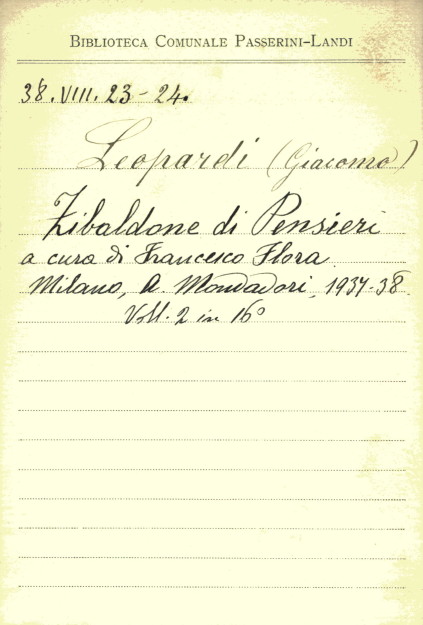 Biblioteca Comunale Passerini-Landi
38. VIII. 23-24.
Leopardi (Giacomo)
Zibaldone di Pensieri
a cura di Francesco Flora
Milano, A. Mondadori, 1937-38.
Voll. 2 in 16°